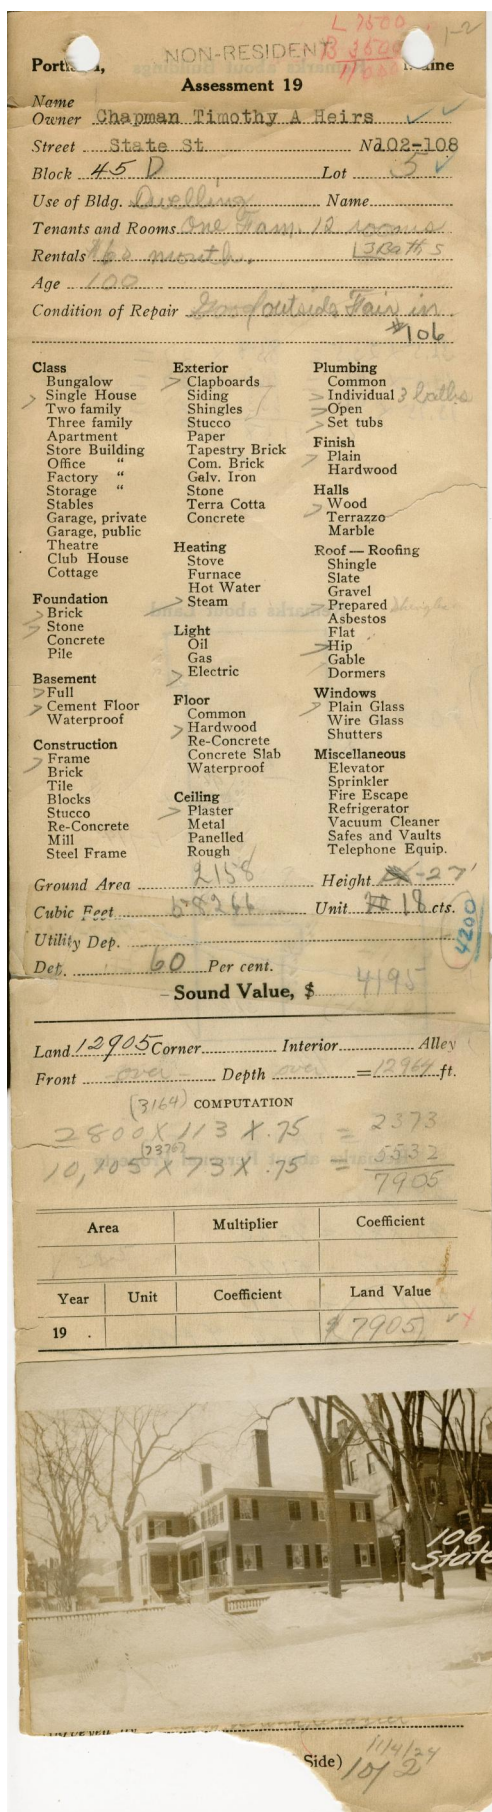 L 7500
B 3500
11000
1-2
NON-RESIDENT
Portland, Maine
Assessment 19
Name
Owner Chapman Timothy A Heirs
Street State St No 102-108
Block 45 D Lot 5
Use of Bldg. Dwelling Name
Tenants and Rooms One Fam. 12 rooms
Rentals $60 month. 3 Baths
Age 100
Condition of Repair Good outside Fair in.
#106
Class
Bungalow
Single House
Two family
Three family
Apartment
Store Building
Office "
Factory "
Storage "
Stables
Garage, private
Garage, public
Theatre
Club House
Cottage
Foundation
Brick
Stone
Concrete
Pile
Basement
Full
Cement Floor
Waterproof
Construction
Frame
Brick
Tile
Blocks
Stucco
Re-Concrete
Mill
Steel Frame
Exterior
Clapboards
Siding
Shingles
Stucco
Paper
Tapestry Brick
Com. Brick
Galv. Iron
Stone
Terra Cotta
Concrete
Heating
Stove
Furnace
Hot Water
Steam
Light
Oil
Gas
Electric
Floor
Common
Hardwood
Re-Concrete
Concrete Slab
Waterproof
Ceiling
Plaster
Metal
Panelled
Rough
Plumbing
Common
Individual 3 baths
Open
Set tubs
Finish
Plain
Hardwood
Halls
Wood
Terrazzo
Marble
Roof — Roofing
Shingle
Slate
Gravel
Prepared
Asbestos
Flat
Hip
Gable
Dormers
Windows
Plain Glass
Wire Glass
Shutters
Miscellaneous
Elevator
Sprinkler
Fire Escape
Refrigerator
Vacuum Cleaner
Safes and Vaults
Telephone Equip.
Ground Area 2158 Height -27'
Cubic Feet 58266 Unit 18 cts.
4200
Utility Dep.
Det. 60 Per cent.
Sound Value, $ 4195
Land 12905 Corner Interior Alley
Front over Depth over = 12964 ft.
(3164) COMPUTATION
2800 X 113 X .75 = 2373
(7376)
10,105 X 73 X .75 = 5532
7905
Area Multiplier Coefficient
Year Unit Coefficient Land Value
19 . 7905
106
State
Side)
11/4/24
1 of 2